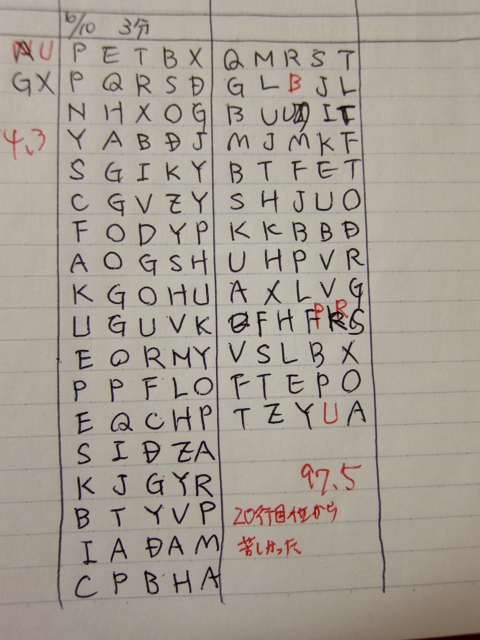 6/10 3分
U P E T B X
GX P Q R S D
N H X O G
4.3 Y A B D J
S G I K Y
C G V Z Y
F O D Y P
A O G S H
K G O H U
U G U V K
E O R M Y
P P F L O
E Q C H P
S I D Z A
K J G Y R
B T Y V P
I A D A M
C P B H A
Q M R S T
G L B J L
B U I T
M J M K F
B T F E T
S H J U O
K K B B D
U H P V R
A X L V G
P R
F H F S
V S L B X
F T E P O
T Z Y U A
97.5
20行目位から
苦しかった